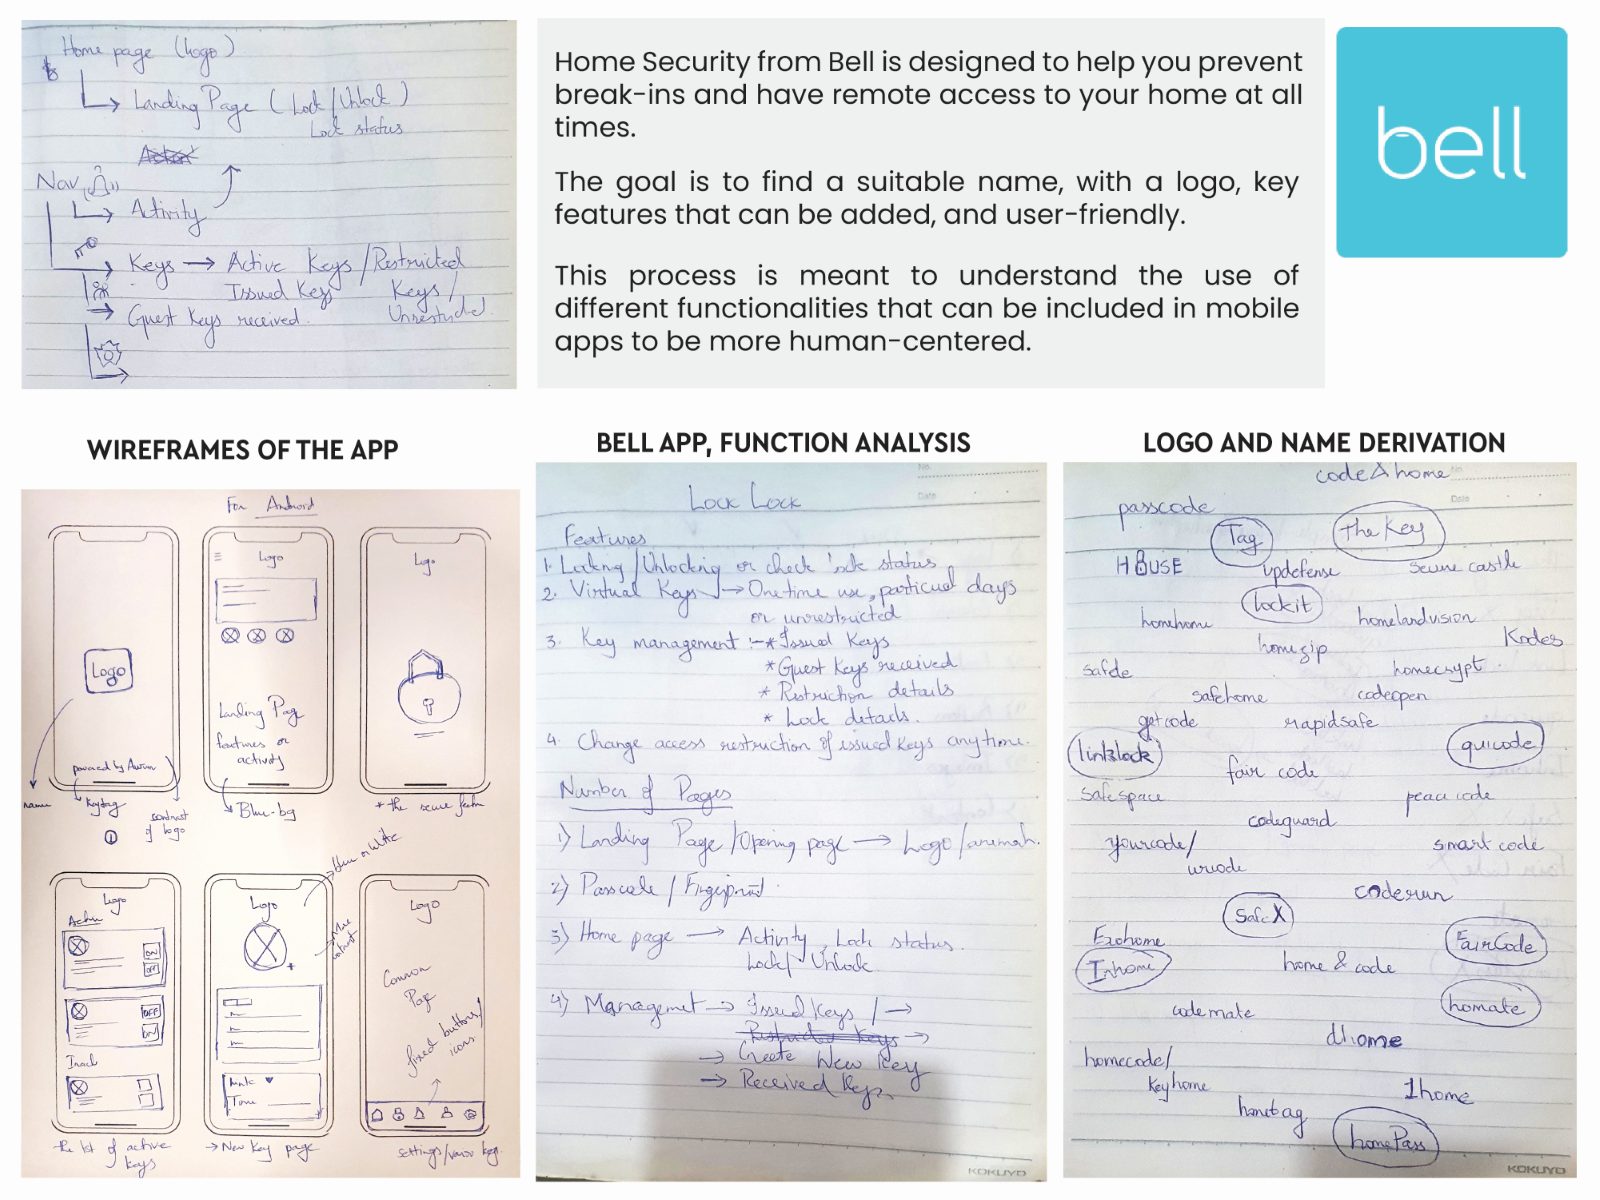 Home page (Logo)
Landing Page (Lock/Unlock)
Lock status
Nav
Activity
Keys → Active Keys/Restricted
Issued Keys Keys/
Guest Keys received. Unrestricted.
Home Security from Bell is designed to help you prevent
break-ins and have remote access to your home at all
times.
The goal is to find a suitable name, with a logo, key
features that can be added, and user-friendly.
This process is meant to understand the use of
different functionalities that can be included in mobile
apps to be more human-centered.
bell
WIREFRAMES OF THE APP
For Android
Logo
Logo
Logo
Landing Page
features or
activity
powered by
name
contrast
of logo
Blue-bg
* the secure
Logo
Logo
Logo
ON
OFF
OFF
ON
Common
Page
fixed buttons/
icons
the list of active
keys
→ New Key page
settings/
BELL APP, FUNCTION ANALYSIS
No.
Date
Lock Lock
Features
1. Locking/Unlocking or check lock status
2. Virtual Keys → One time use, particual days
or unrestricted
3. Key management :- * Issued Keys
* Guest Keys received
* Restriction details
* Lock details.
4. Change access restriction of issued keys anytime.
Number of Pages
1) Landing Page/Opening page → Logo/
2) Passcode/Fingerprint.
3) Home page → Activity, Lock status.
Lock/Unlock
4) Managemet → Issued Keys/→
Restricted Keys →
→ Create New Key
→ Received Keys.
KOKUYO
LOGO AND NAME DERIVATION
code home
No
Date
passcode
Tag
the Key
HOUSE
updefense
secure castle
lockit
homehome
homelandvision
homezip
Kodes
safde
homecrypt
safehome
codeopen
getcode
rapidsafe
linkzlock
quicode
fair code
safespace
peace code
codeguard
yourcode/
urcode
smart code
coderun
SafeX
Exohome
FairCode
Inhome
home & code
homate
codemate
dhome
homecode/
keyhome
1home
hometag
homePass
KOKUYO